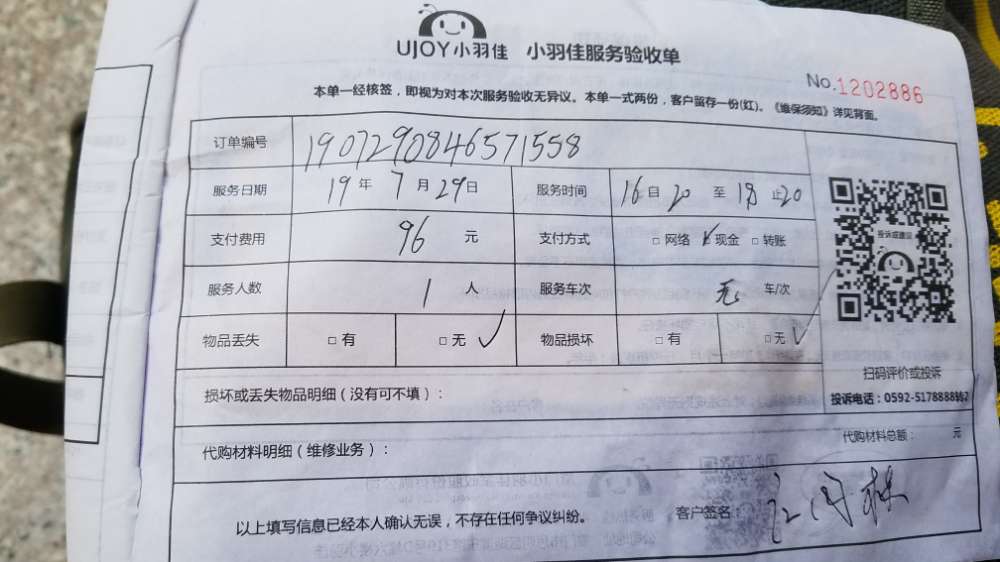 UJOY小羽佳 小羽佳服务验收单
No.1202886
本单一经核签，即视为对本次服务验收无异议。本单一式两份，客户留存一份(红)。《维保须知》详见背面。
订单编号 1907290846571558
服务日期 19年7月29日 服务时间 16自20至18止20
支付费用 96元 支付方式 □网络 ✓现金 □转账
投诉或建议
服务人数 1人 服务车次 无 车/次
物品丢失 □有 □无 ✓ 物品损坏 □有 □无 ✓
扫码评价或投诉
损坏或丢失物品明细（没有可不填）：
投诉电话：0592-5178888
代购材料明细（维修业务）：
代购材料总额： 元
以上填写信息已经本人确认无误，不存在任何争议纠纷。 客户签名：